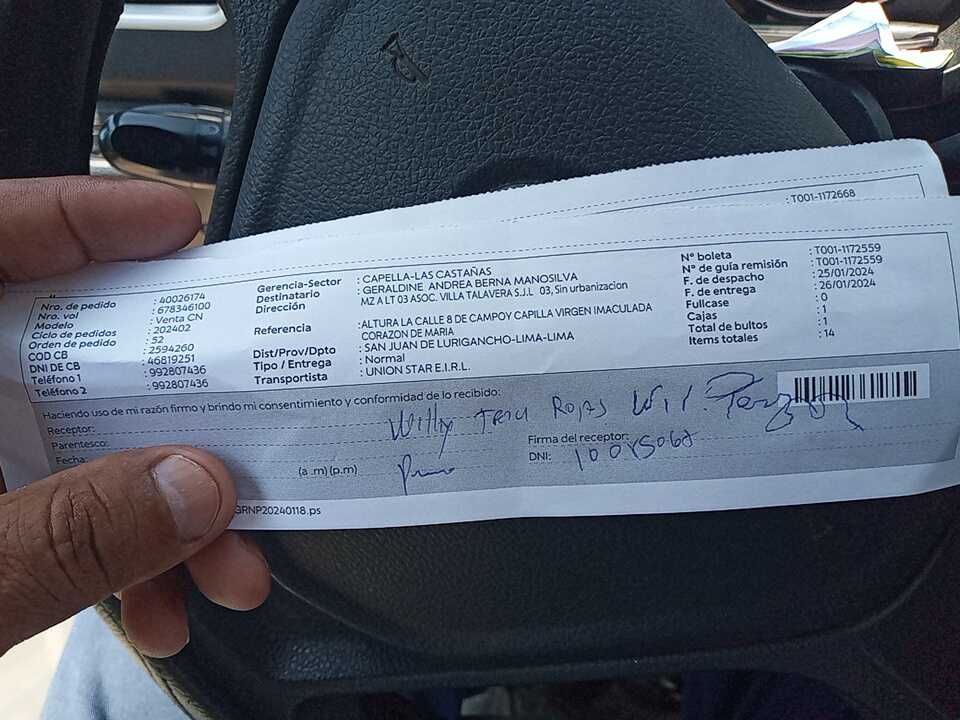 : T001-1172668
Nro. de pedido : 40026174
Nro. vol : 678346100
Modelo : Venta CN
Ciclo de pedidos : 202402
Orden de pedido : 52
COD CB : 2594260
DNI DE CB : 46819251
Teléfono 1 : 992807436
Teléfono 2 : 992807436
Gerencia-Sector : CAPELLA-LAS CASTAÑAS
Destinatario : GERALDINE ANDREA BERNA MANOSILVA
Dirección : MZ A LT 03 ASOC. VILLA TALAVERA S.J.L 03, Sin urbanizacion
Referencia : ALTURA LA CALLE 8 DE CAMPOY CAPILLA VIRGEN IMACULADA
CORAZON DE MARIA
Dist/Prov/Dpto : SAN JUAN DE LURIGANCHO-LIMA-LIMA
Tipo / Entrega : Normal
Transportista : UNION STAR E.I.R.L.
N° boleta : T001-1172559
N° de guía remisión : T001-1172559
F. de despacho : 25/01/2024
F. de entrega : 26/01/2024
Fullcase : 0
Cajas : 1
Total de bultos : 1
Items totales : 14
Haciendo uso de mi razón firmo y brindo mi consentimiento y conformidad de lo recibido:
Receptor: Willy Rojas
Parentesco: Primo
Fecha: (a .m) (p.m)
Firma del receptor:
DNI:
GRNP20240118.ps